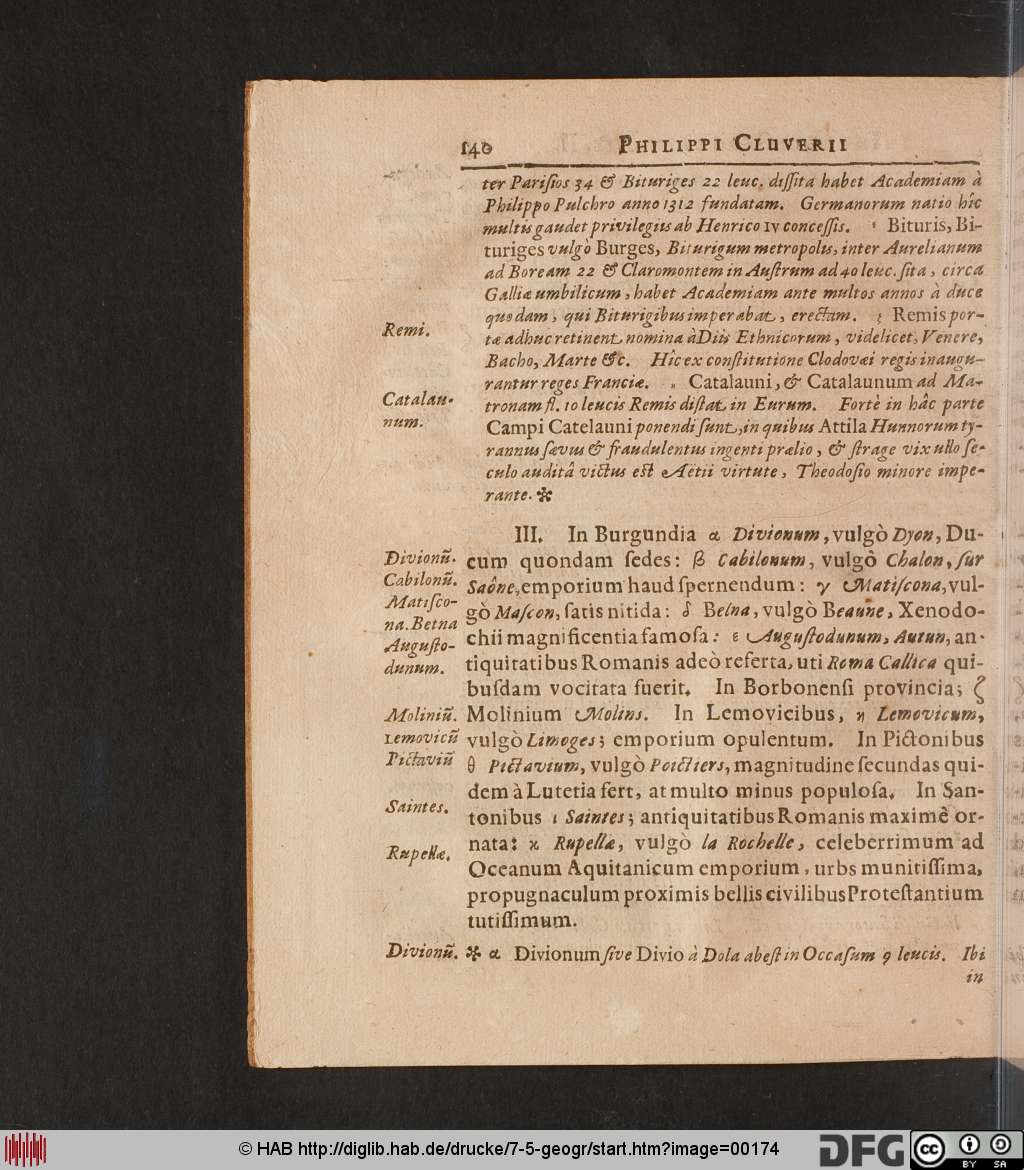 140 PHILIPPI CLUVERII
ter Pariſios 34 & Bituriges 22 leuc. diſſita habet Academiam à
Philippo Pulchro anno 1312 fundatam. Germanorum natio hîc
multis gaudet privilegiis ab Henrico IV conceſſis. Bituris, Bi-
turiges vulgò Burges, Biturigum metropolis, inter Aurelianum
ad Boream 22 & Claromontem in Auſtrum ad 40 leuc. ſita, circa
Galliæ umbilicum, habet Academiam ante multos annos à duce
quodam, qui Biturigibus imperabat, erectam. Remis por-
Remi.
tæ adhuc retinent nomina à Diis Ethnicorum, videlicet, Venere,
Bacho, Marte &c. Hîc ex conſtitutione Clodovæi regis inaugu-
rantur reges Franciæ. Catalauni, & Catalaunum ad Ma-
Catalau-
num.
tronam fl. 10 leucis Remis diſtat in Eurum. Fortè in hâc parte
Campi Catelauni ponendi ſunt, in quibus Attila Hunnorum ty-
rannus ſævus & fraudulentus ingenti prælio, & ſtrage vix ullo ſe-
culo auditâ victus eſt Aetii virtute, Theodoſio minore impe-
rante. ✻
III. In Burgundia α Divionum, vulgò Dyon, Du-
Divionũ.
cum quondam ſedes: β Cabilonum, vulgò Chalon, ſur
Cabilonũ.
Saône, emporium haud ſpernendum: γ Matiſcona, vul-
Matiſco-
na. Betna
gò Maſcon, ſatis nitida: δ Belna, vulgò Beaune, Xenodo-
chii magnificentia famoſa: ε Auguſtodunum, Autun, an-
Auguſto-
dunum.
tiquitatibus Romanis adeò referta, uti Roma Callica qui-
buſdam vocitata fuerit. In Borbonenſi provincia; ζ
Moliniũ.
Molinium Molins. In Lemovicibus, η Lemovicum,
Lemovicũ
vulgò Limoges; emporium opulentum. In Pictonibus
Pictaviũ
θ Pictavium, vulgò Poictiers, magnitudine ſecundas qui-
dem à Lutetia fert, at multo minus populoſa. In San-
Saintes.
tonibus ι Saintes; antiquitatibus Romanis maximè or-
nata: ϰ Rupellæ, vulgò la Rochelle, celeberrimum ad
Rupellæ.
Oceanum Aquitanicum emporium, urbs munitiſſima,
propugnaculum proximis bellis civilibus Proteſtantium
tutiſſimum.
Divionũ.
✻ α Divionum ſive Divio à Dola abeſt in Occaſum 9 leucis. Ibi
in
© HAB http://diglib.hab.de/drucke/7-5-geogr/start.htm?image=00174
DFG
cc BY SA